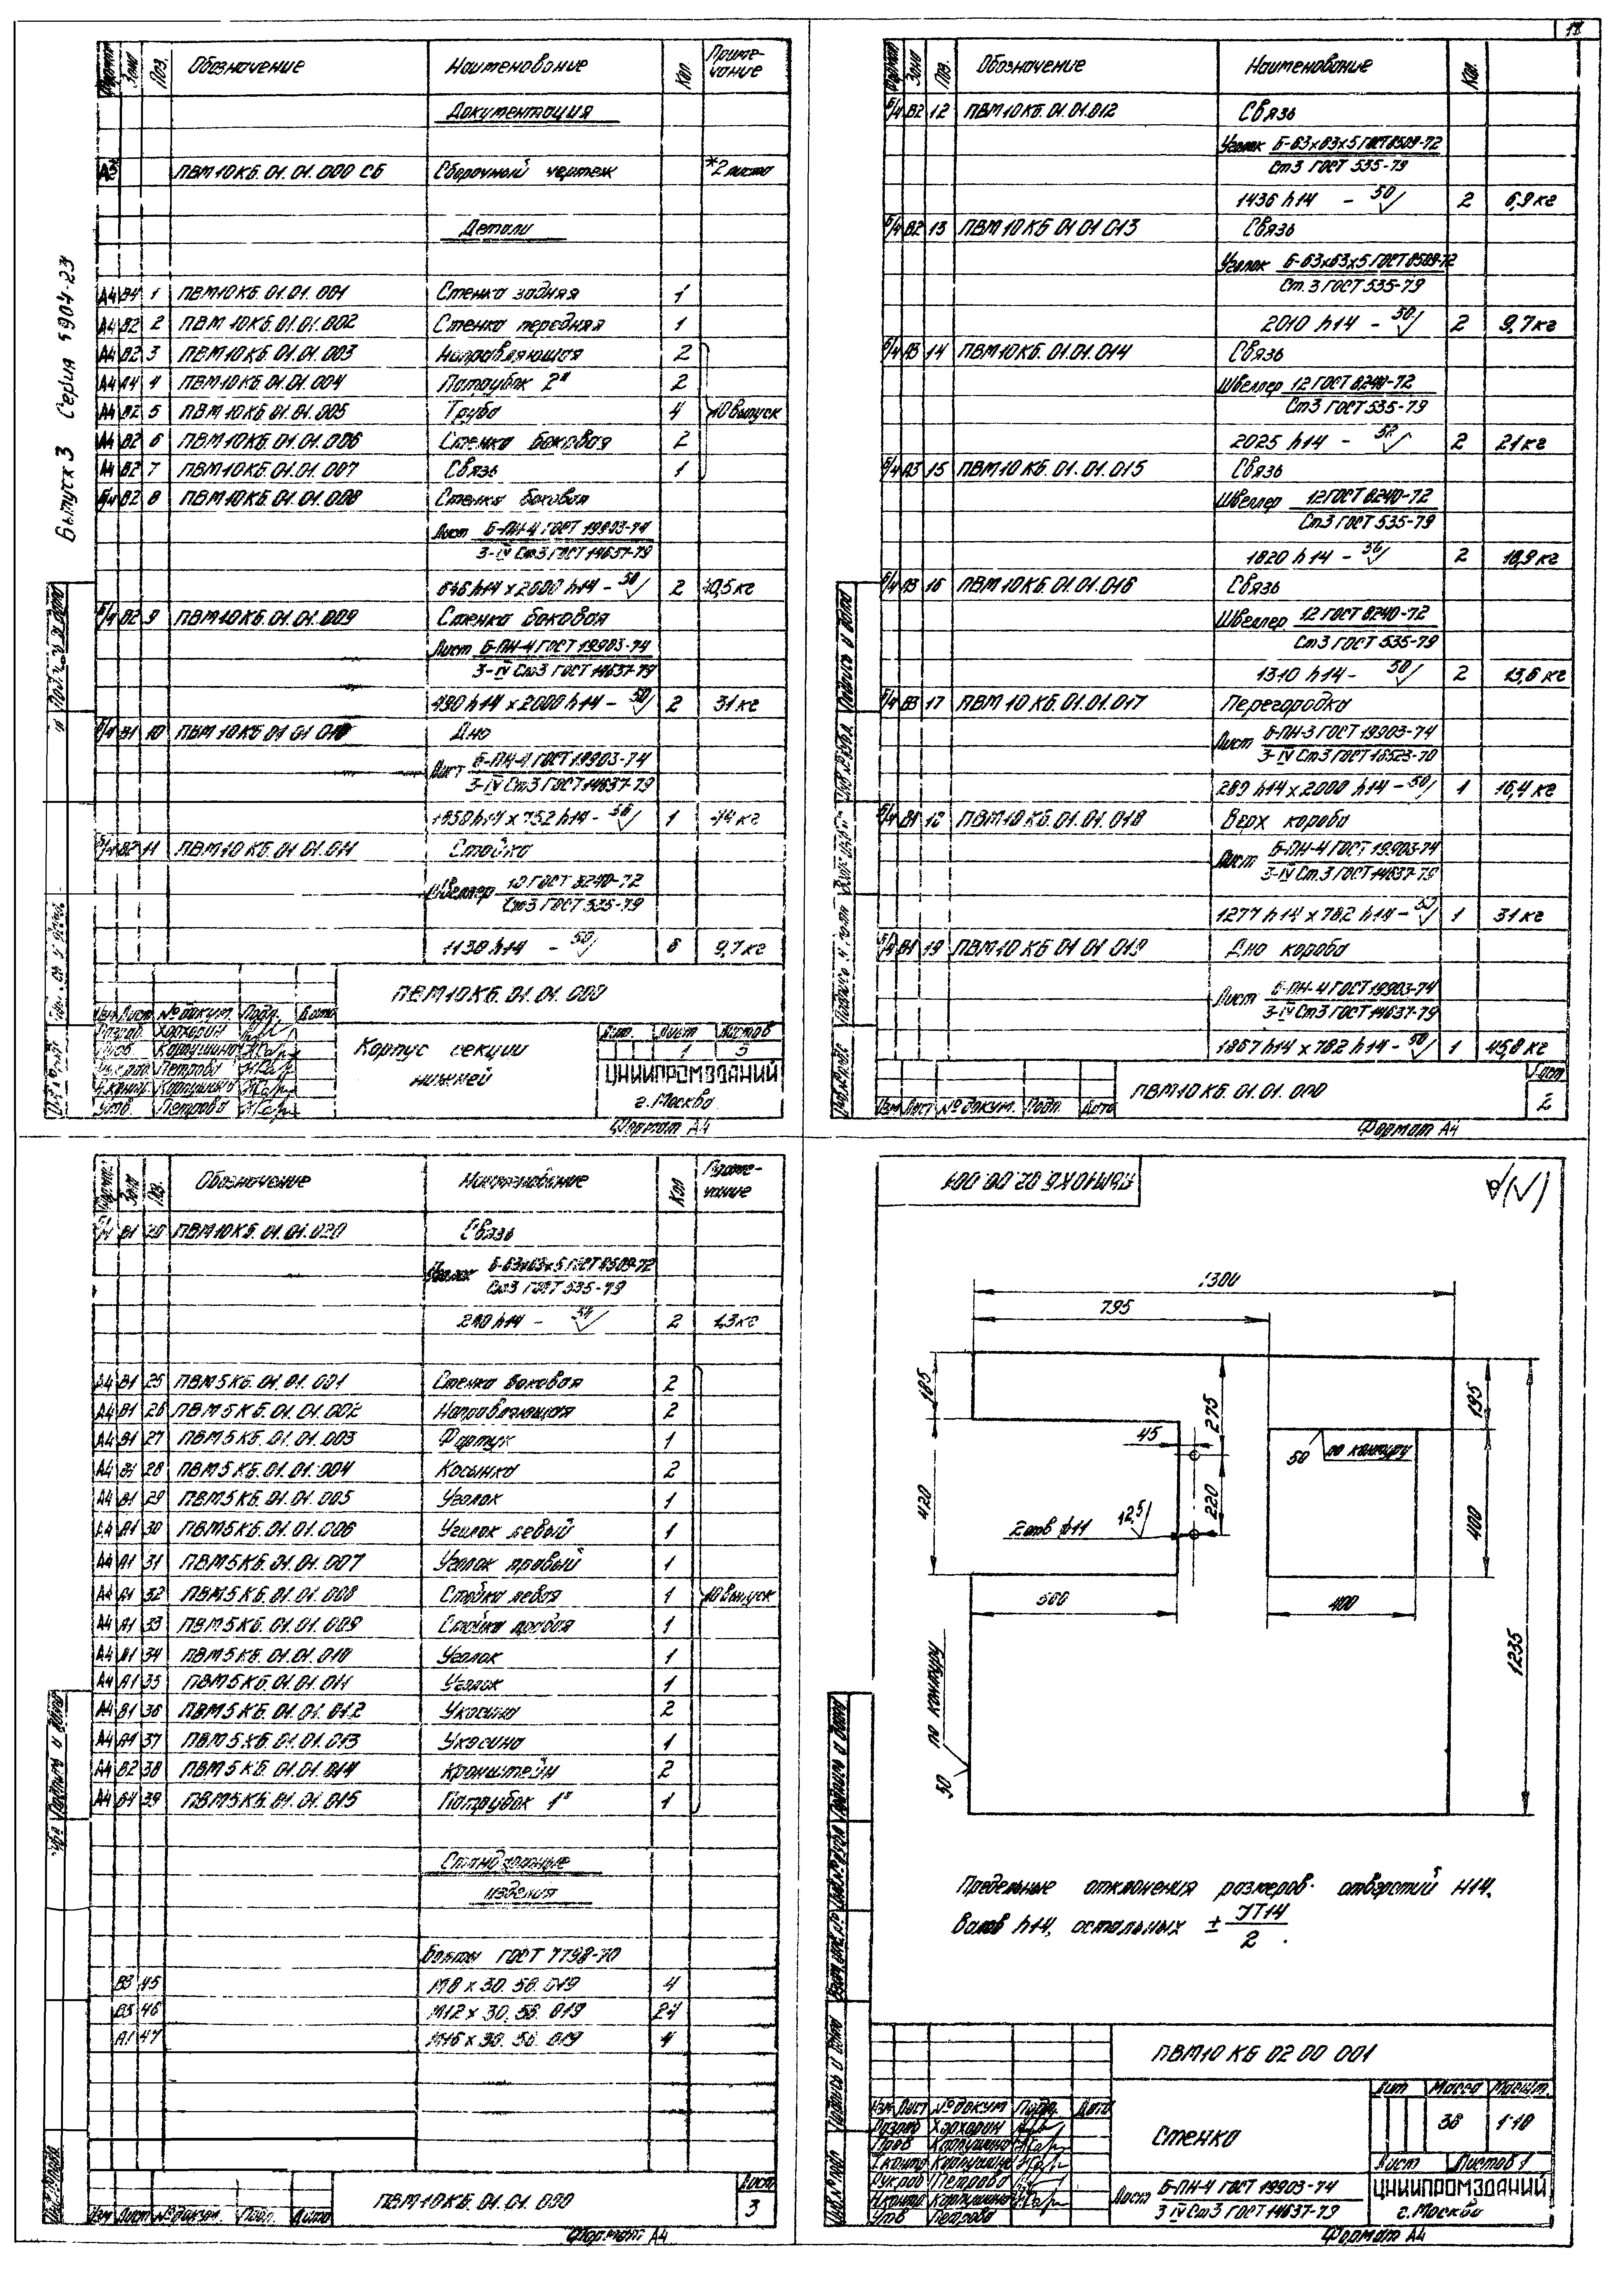 Выпуск 3 Серия 5.904-23
Зона Поз. Обозначение Наименование Кол. Приме-чание
Документация
А3 ПВМ10КБ.01.01.000 СБ Сборочный чертеж *2 листа
Детали
А4 В4 1 ПВМ10КБ.01.01.001 Стенка задняя 1
А4 В2 2 ПВМ10КБ.01.01.002 Стенка передняя 1
А4 В2 3 ПВМ10КБ.01.01.003 Направляющая 2
А4 А4 4 ПВМ10КБ.01.01.004 Патрубок 2" 2
А4 В2 5 ПВМ10КБ.01.01.005 Труба 4 10 выпуск
А4 В2 6 ПВМ10КБ.01.01.006 Стенка боковая 2
А4 В2 7 ПВМ10КБ.01.01.007 Связь 1
Б/4 В2 8 ПВМ10КБ.01.01.008 Стенка боковая
Лист Б-ПН-4 ГОСТ 19903-74
3-IV Ст3 ГОСТ 14637-79
646 h14 x 2000 h14 - 50 2
Б/4 В2 9 ПВМ10КБ.01.01.009 Стенка боковая
Лист Б-ПН-4 ГОСТ 19903-74
3-IV Ст3 ГОСТ 14637-79
490 h14 x 2000 h14 - 50 2 31 кг
Б/4 В1 10 ПВМ10КБ.01.01.010 Дно
Лист Б-ПН-4 ГОСТ 19903-74
3-IV Ст3 ГОСТ 14637-79
1 44 кг
Б/4 В2 11 ПВМ10КБ.01.01.011 Стойка
Швеллер ГОСТ 8240-72
Ст3 ГОСТ 535-79
1130 h14 - 50 6 9,7 кг
ПВМ10КБ.01.01.000
Изм Лист № докум. Подп. Дата
Разраб. Хархорин
Пров Карпушина
Рук.раб Петрова
Н.контр Карпушина
Утв. Петрова
Корпус секции нижней
Лит. Лист Листов
1 3
ЦНИИПРОМЗДАНИЙ
г. Москва
Формат А4
Зона Поз. Обозначение Наименование Кол.
Б/4 В2 12 ПВМ10КБ.01.01.012 Связь
Уголок Б-63x63x5 ГОСТ 8509-72
Ст3 ГОСТ 535-79
1436 h14 - 50 2 6,9 кг
Б/4 В2 13 ПВМ10КБ 01 01 013 Связь
Уголок Б-63x63x5 ГОСТ 8509-72
Ст.3 ГОСТ 535-79
2010 h14 - 50 2 9,7 кг
Б/4 А3 14 ПВМ10КБ.01.01.014 Связь
Швеллер 12 ГОСТ 8240-72
Ст3 ГОСТ 535-79
2025 h14 - 50 2 21 кг
Б/4 А3 15 ПВМ10КБ.01.01.015 Связь
Швеллер 12 ГОСТ 8240-72
Ст3 ГОСТ 535-79
1820 h14 - 50 2 18,9 кг
Б/4 А3 16 ПВМ10КБ.01.01.016 Связь
Швеллер 12 ГОСТ 8240-72
Ст3 ГОСТ 535-79
1310 h14 - 50 2 13,6 кг
Б/4 В3 17 ПВМ10КБ.01.01.017 Перегородка
Лист Б-ПН-3 ГОСТ 19903-74
3-IV Ст3 ГОСТ 16523-70
1 16,4 кг
Б/4 В1 18 ПВМ10КБ.01.01.018 Верх короба
Лист Б-ПН-4 ГОСТ 19903-74
3-IV Ст.3 ГОСТ 14637-79
1277 h14 x 782 h14 - 50 1 31 кг
Б/4 В1 19 ПВМ10КБ 01 01 019 Дно короба
Лист Б-ПН-4 ГОСТ 19903-74
3-IV Ст3 ГОСТ 14637-79
1867 h14 x 782 h14 - 50 1 45,8 кг
Изм Лист № докум. Подп. Дата
ПВМ10КБ.01.01.000
Лист
2
Формат А4
Зона Поз. Обозначение Наименование Кол Приме-чание
Б/4 В1 20 ПВМ10КБ.01.01.020 Связь
Уголок Б-63x63x5 ГОСТ 8509-72
Ст3 ГОСТ 535-79
h14 - 50 2 1,3 кг
А4 В1 25 ПВМ5КБ.01.01.001 Стенка боковая 2
А4 В1 26 ПВМ5КБ.01.01.002 Направляющая 2
А4 В1 27 ПВМ5КБ.01.01.003 Фартук 1
А4 В1 28 ПВМ5КБ.01.01.004 Косынка 2
А4 В1 29 ПВМ5КБ.01.01.005 Уголок 1
А4 А1 30 ПВМ5КБ.01.01.006 Уголок левый 1
А4 А1 31 ПВМ5КБ.01.01.007 Уголок правый 1
А4 А1 32 ПВМ5КБ.01.01.008 Стойка левая 1 10 выпуск
А4 А1 33 ПВМ5КБ.01.01.009 Стойка правая 1
А4 А1 34 ПВМ5КБ.01.01.010 Уголок 1
А4 А1 35 ПВМ5КБ.01.01.011 Уголок 1
А4 В1 36 ПВМ5КБ.01.01.012 Укосина 2
А4 А1 37 ПВМ5КБ.01.01.013 Укосина 1
А4 В2 38 ПВМ5КБ.01.01.014 Кронштейн 2
А4 В4 39 ПВМ5КБ.01.01.015 Патрубок 1" 1
Стандартные
изделия
Болты ГОСТ 7798-70
В3 45 М8 x 30.58.019 4
В3 46 М12 x 30.58.019 24
А1 47 М16 x 30.58.019 4
Изм Лист № докум. Подп. Дата
ПВМ10КБ.01.01.000
Лист
3
Формат А4
ПВМ10КБ 02.00.001
1300
795
185
275
195
45
50 по контуру
420
220
400
2 отв ⌀11 12,5
500
400
1235
50 по контуру
Предельные отклонения размеров: отверстий Н14,
валов h14, остальных ± IT14
2
ПВМ10 КБ 02 00 001
Изм Лист № докум Подп. Дата
Разраб Хархорин
Пров Карпушина
Т.контр Карпушина
Рук.раб Петрова
Н.контр Карпушина
Утв Петрова
Стенка
Лит Масса Масшт.
38 1:10
Лист Листов 1
Лист Б-ПН-4 ГОСТ 19903-74
3 IV Ст3 ГОСТ 14637-79
ЦНИИПРОМЗДАНИЙ
г. Москва
Формат А4